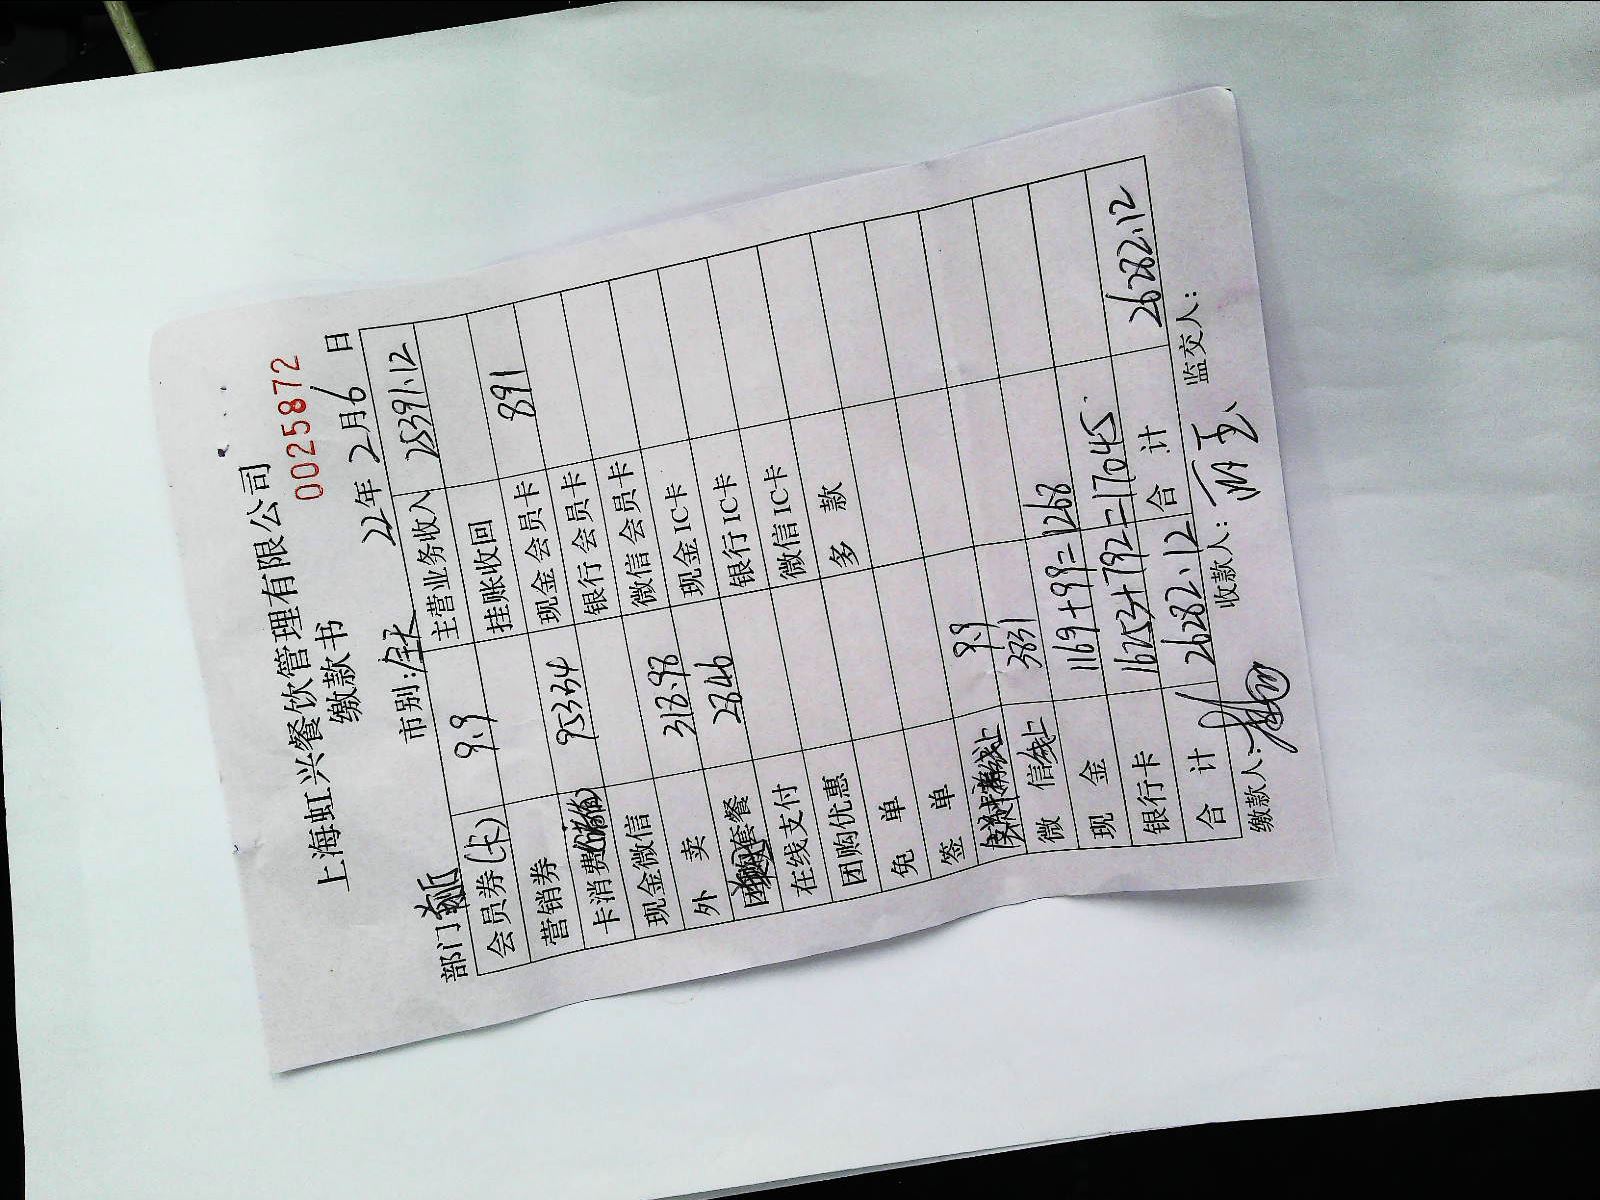 上海虹兴餐饮管理有限公司
缴款书 0025872
部门 市别:全天 22年2月6日
会员券(卡) 9.9 主营业务收入 25391.12
营销券 挂账收回
卡消费(储值) 953.34 现金会员卡 891
现金微信 银行会员卡
外 卖 318.98 微信会员卡
套餐 2846 现金IC卡
在线支付 银行IC卡
团购优惠 微信IC卡
免 单 多 款
签 单
9.9
微 信线上 3831
现 金 1169+99=1268
银行卡 16253+792=17045
合 计 26282.12 合 计 26282.12
缴款人: 收款人: 监交人: